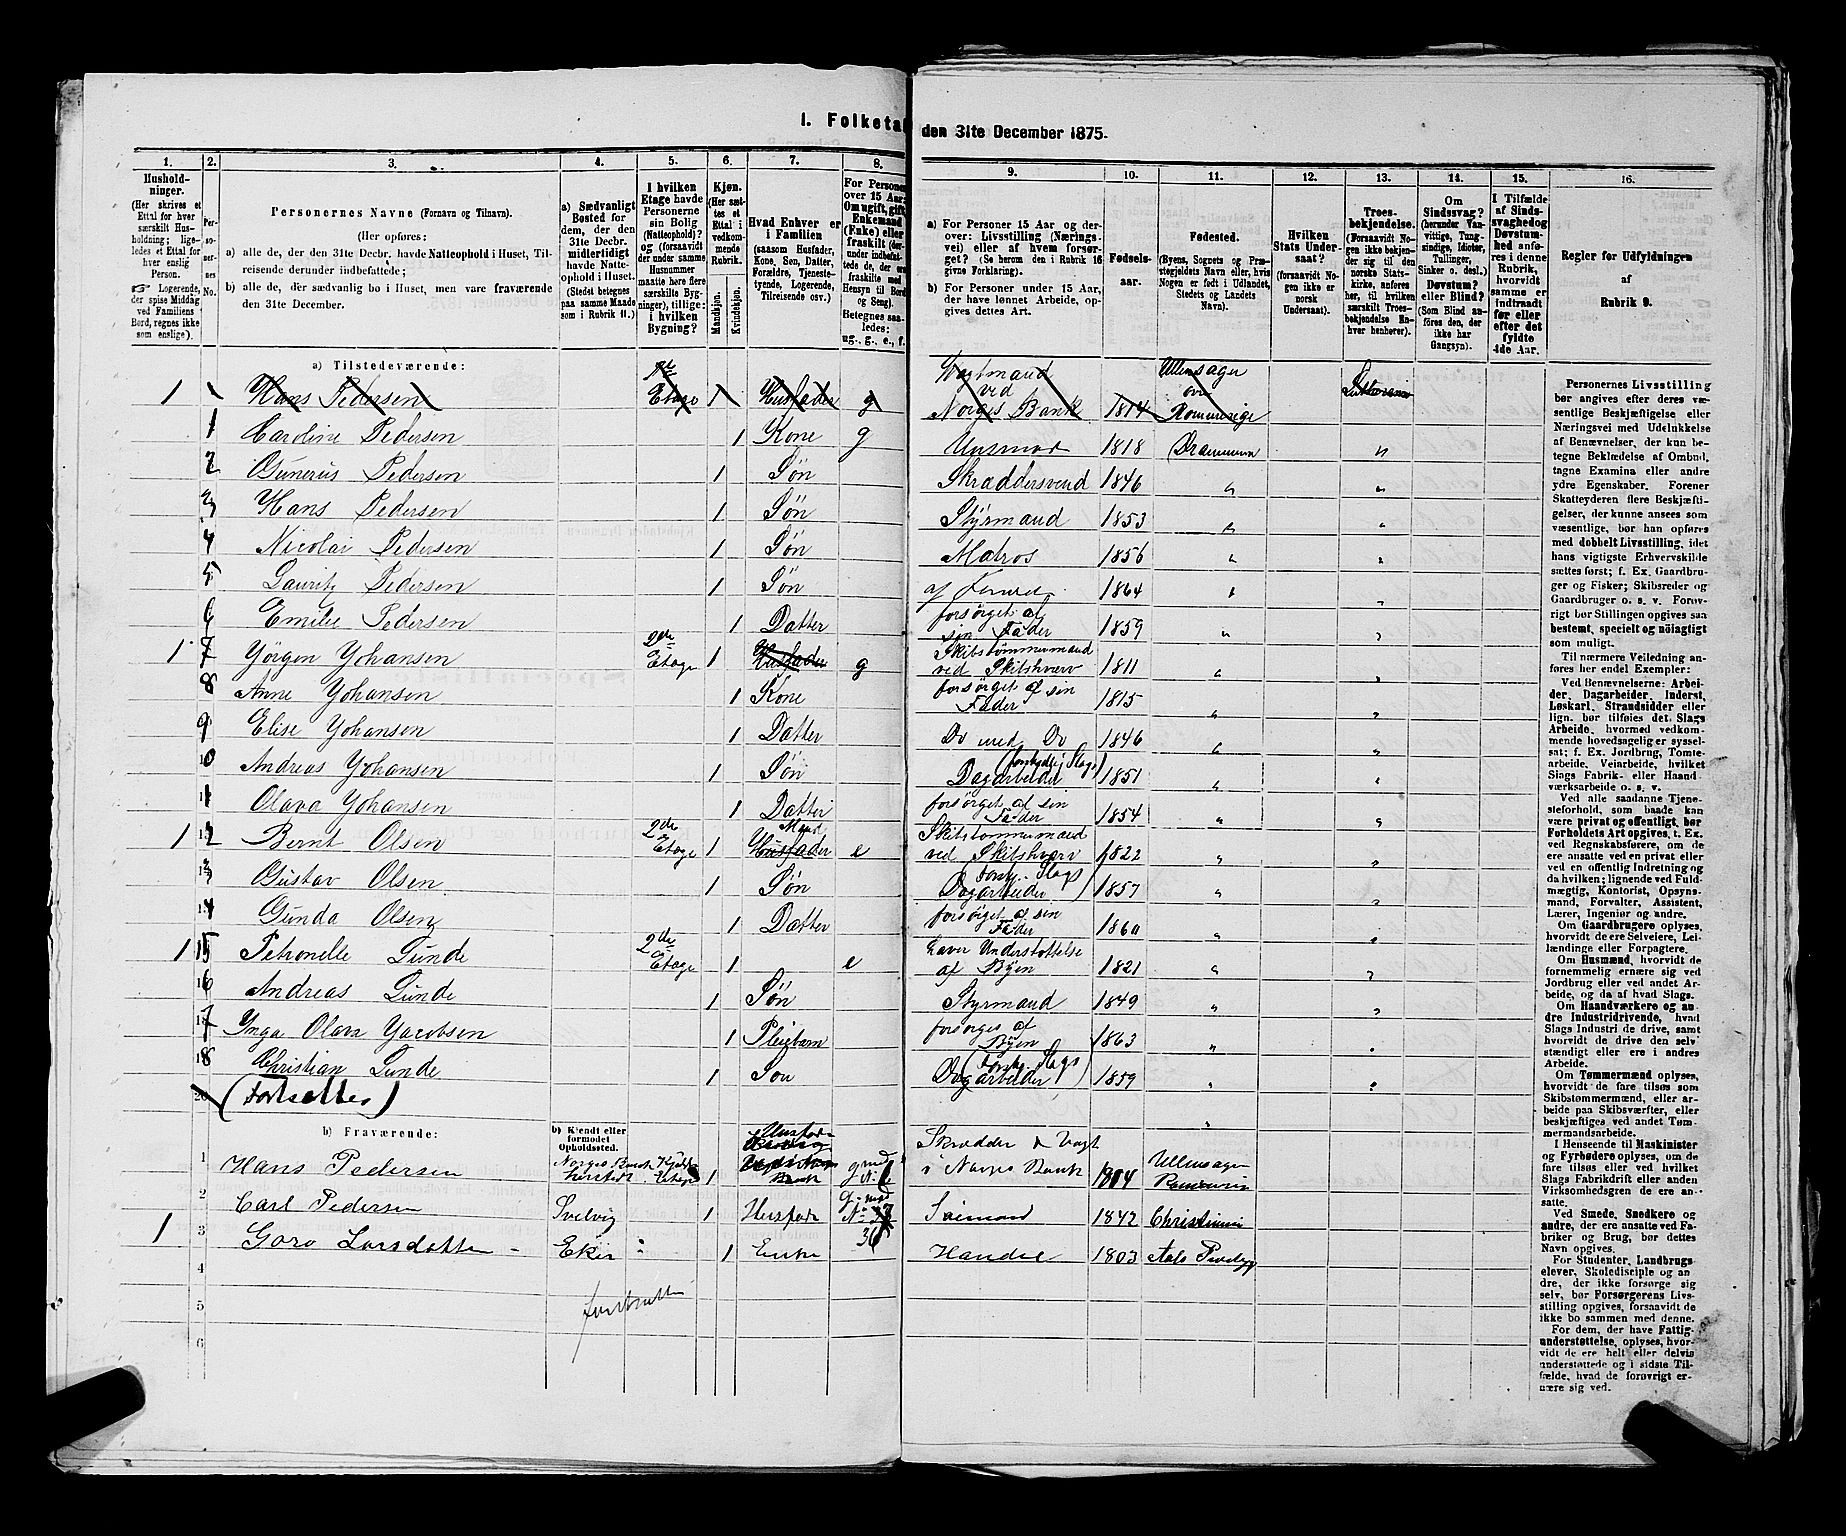 I. Folketal
den 31te December 1875.
1. 2. 3. 4. 5. 6. 7. 8. 9. 10. 11. 12. 13. 14. 15. 16.
Husholdninger.
(Her skrives et Ettal for hver særskilt Husholdning; ligeledes et Ettal for hver enslig Person.
☞ Logerende, der spise Middag ved Familiens Bord, regnes ikke som enslige).
Personernes No.
Personernes Navne (Fornavn og Tilnavn).
(Her opføres:
a) alle de, der den 31te Decbr. havde Natteophold i Huset, Tilreisende derunder indbefattede;
b) alle de, der sædvanlig bo i Huset, men vare fraværende den 31te December.
a) Sædvanligt Bosted for dem, der den 31te Decbr. midlertidigt havde Natteophold i Huset. (Stedet betegnes paa samme Maade som i Rubrik 11.)
I hvilken Etage havde Personerne sin Bolig (Natteophold)? og (forsaavidt der under samme Husnummer maatte høre flere særskilte Bygninger), tillige: i hvilken Bygning?
Kjøn.
(Her sættes et Ettal i vedkommende Rubrik.
Mandkjøn. Kvindekjøn.
Hvad Enhver er i Familien
(saasom Husfader, Kone, Søn, Datter, Forældre, Tjenestetyende, Logerende, Tilreisende osv.)
For Personer over 15 Aar: Om ugift, gift, Enkemand (Enke) eller fraskilt
Betegnes saaledes: ug., g., e., f.
a) For Personer 15 Aar og derover: Livsstilling (Næringsvei) eller af hvem forsørget? (Se herom den i Rubrik 16 givne Forklaring).
b) For Personer under 15 Aar, der have lønnet Arbeide, opgives dettes Art.
Fødselsaar.
Fødested.
(Byens, Sognets og Præstegjeldets Navn eller, hvis Nogen er født i Udlandet, Stedets og Landets Navn).
Hvilken Stats Undersaat?
(forsaavidt Nogen ikke er norsk Undersaat).
Troesbekjendelse.
(Forsaavidt Nogen ikke bekjender sig til den norske Statskirke, anføres her, til hvilken særskilt Troesbekjendelse Enhver henhører).
Om Sindssvag? (herunder Vanvittige, Tungsindige, Idioter, Tullinger, Sinker o. desl.) Døvstum? eller Blind? (Som Blind anføres den, der ikke har Gangsyn).
I Tilfælde af Sindssvaghed og Døvstumhed anføres i denne Rubrik, hvorvidt samme er indtraadt før eller efter det fyldte 4de Aar.
Regler for Udfyldningen af Rubrik 9.
a) Tilstedeværende:
1 Hans Pedersen Etage 1 Husfader g Vagtmand ved Norges Bank 1814 Ullensager Romerige
1 Caroline Pedersen 1 Kone g 1818 Drammen "
2 Gunerius Pedersen 1 Søn Skræddersvend 1846 " "
3 Hans Pedersen 1 Søn Styrmand 1853 " "
4 Nicolai Pedersen 1 Søn Matros 1856 " "
5 Lauritz Pedersen 1 Søn 1864 " "
6 Emilie Pedersen 1 Datter forsørget af sin Fader 1859 " "
1 7 Yørgen Yohansen 2de Etage 1 Husfader g Skibstømmermand ved Skibsværv 1811 " "
8 Anne Yohansen 1 Kone forsørget af sin Fader 1815 " "
9 Elise Yohansen 1 Datter Do med Do 1846 " "
10 Andreas Yohansen 1 Søn Dagarbeider (forskjellig Slags) 1851 " "
11 Olava Yohansen 1 Datter forsørget af sin Fader 1854 " "
1 12 Bernt Olsen 2de Etage 1 Husfader Mand e Skibstømmermand ved Skibsværv 1822 " "
13 Gustav Olsen 1 Søn Dagarbeider (forsk. Slags) 1857 " "
14 Gunda Olsen 1 Datter forsørget af sin Fader 1860 " "
1 15 Petronelle Lunde 2de Etage 1 e Laver Understøttelse af Byen 1821 " "
16 Andreas Lunde 1 Søn Styrmand 1849 " "
17 Ynga Olava Yacobsen 1 Pleiebarn forsørges af Byen 1863 " "
18 Christian Lunde 1 Søn Dagarbeider (forsk. Slags) 1859 " "
20 (Fortsættes)
b) Fraværende:
b) Kjendt eller formodet Opholdssted.
1 Hans Pedersen Norges Bank 1 Skrædder & Vagt i Norges Bank 1814 Ullensager Romerige
2 Carl Pedersen Svelvig 1 Husfader Sømand 1842 Christiania
1 3 Goro Larsdatter Eker 1 Enke Handel 1803
4
5
6
Personernes Livsstilling bør angives efter deres væsentlige Beskjæftigelse eller Næringsvei med Udelukkelse af Benævnelser, der kun betegne Beklædelse af Ombud, tagne Examina eller andre ydre Egenskaber. Forener Skatteyderen flere Beskjæftigelser, der kunne ansees som væsentlige, bør han opføres med dobbelt Livsstilling, idet hans vigtigste Erhvervskilde sættes først; f. Ex. Gaardbruger og Fisker; Skibsreder og Gaardbruger o. s. v. Forøvrigt bør Stillingen opgives saa bestemt, specielt og nöiagtigt som muligt.
Til nærmere Veiledning anføres her endel Exempler:
Ved Benævnelserne: Arbeider, Dagarbeider, Inderst, Løskarl, Strandsidder eller lign. bør tilføies det Slags Arbeide, hvormed vedkommende hovedsagelig er sysselsat; f. Ex. Jordbrug, Tomtearbeide, Veiarbeide, hvilket Slags Fabrik- eller Haandværksarbeide o. s. v.
Ved alle saadanne Tjenesteforhold, som baade kan være privat og offentligt, bør Forholdets Art opgives, t. Ex. ved Regnskabsførere, om de ere ansatte ved en privat eller ved en offentlig Indretning og da hvilken; lignende ved Fuldmægtig, Kontorist, Opsynsmand, Forvalter, Assistent, Lærer, Ingeniør og andre.
Om Gaardbrugere oplyses, hvorvidt de ere Selveiere, Leilændinge eller Forpagtere.
Om Husmænd, hvorvidt de fornemmelig ernære sig ved Jordbrug eller ved andet Arbeide, og da af hvad Slags.
Om Haandværkere og andre Industridrivende, hvad Slags Industri de drive, samt hvorvidt de drive den selvstændigt eller ere i andres Arbeide.
Om Tømmermænd oplyses, hvorvidt de fare tilsøs som Skibstømmermænd, eller arbeide paa Skibsværfter, eller beskjæftiges ved andet Tømmermandsarbeide.
I Henseende til Maskinister og Fyrbødere oplyses, om de fare tilsøs eller ved hvilket Slags Fabrikdrift eller anden Virksomhedsgren de ere ansatte.
Ved Smede, Snedkere og andre, der ere ansatte ved Fabriker og Brug, bør dettes Navn opgives.
For Studenter, Landbrugselever, Skoledisciple og andre, der ikke forsørge sig selv, bør Forsørgerens Livsstilling opgives, forsaavidt de ikke bo sammen med denne.
For dem, der have Fattigunderstøttelse, oplyses, hvorvidt de ere helt eller delvis understøttede og i sidste Tilfælde, hvad de forøvrigt ernære sig ved.